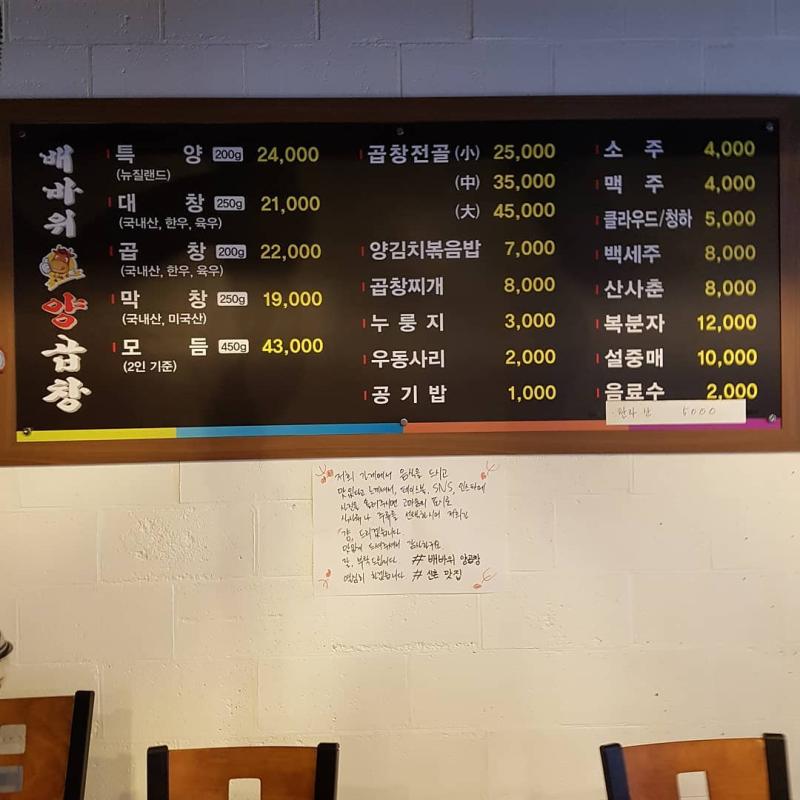 배바위 양곱창
특 양 200g 24,000
(뉴질랜드)
대 창 250g 21,000
(국내산, 한우, 육우)
곱 창 200g 22,000
(국내산, 한우, 육우)
막 창 250g 19,000
(국내산, 미국산)
모 듬 450g 43,000
(2인 기준)
곱창전골 (小) 25,000
(中) 35,000
(大) 45,000
양김치볶음밥 7,000
곱창찌개 8,000
누 룽 지 3,000
우동사리 2,000
공 기 밥 1,000
소 주 4,000
맥 주 4,000
클라우드/청하 5,000
백세주 8,000
산사춘 8,000
복분자 12,000
설중매 10,000
음료수 2,000
5000
저희 가게에서 음식을 드시고
SNS, 인스타에
사진을 올려주시면
드리겠습니다
감사하구요
잘, 부탁드립니다 # 배바위 양곱창
열심히 하겠습니다 # 신촌 맛집